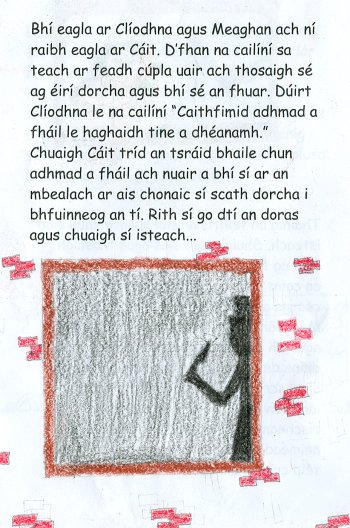 Bhí eagla ar Clíodhna agus Meaghan ach ní
raibh eagla ar Cáit. D’fhan na cailíní sa
teach ar feadh cúpla uair ach thosaigh sé
ag éirí dorcha agus bhí sé an fhuar. Dúirt
Clíodhna le na cailíní “Caithfimid adhmad a
fháil le haghaidh tine a dhéanamh.”
Chuaigh Cáit tríd an tsráid bhaile chun
adhmad a fháil ach nuair a bhí sí ar an
mbealach ar ais chonaic sí scath dorcha i
bhfuinneog an tí. Rith sí go dtí an doras
agus chuaigh sí isteach...